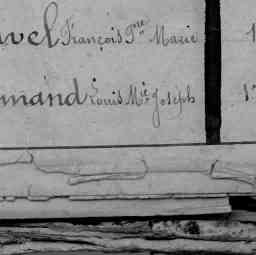 uvel François Pre Marie 1
mand Louis Mie Joseph 1